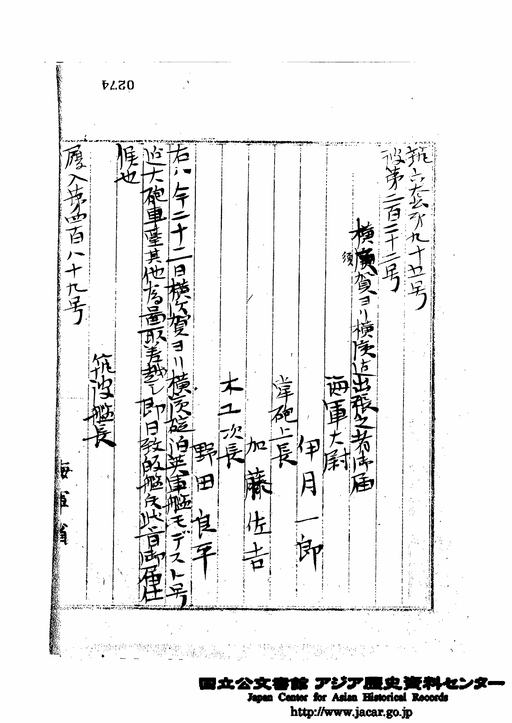 0274
第二百二十二号
横須賀ヨリ横濱迄出張之者御届
海軍大尉
伊月一郎
掌砲上長
加藤佐吉
木工次長
野田良平
右ハ今二十二日横須賀ヨリ横濱碇泊英軍艦モデスト号
迄大砲車臺其他為圖取差越シ即日致帰艦候此旨御届仕
候也
筑波艦長
履入第四百八十九号
海軍省
国立公文書館 アジア歴史資料センター
Japan Center for Asian Historical Records
http://www.jacar.go.jp